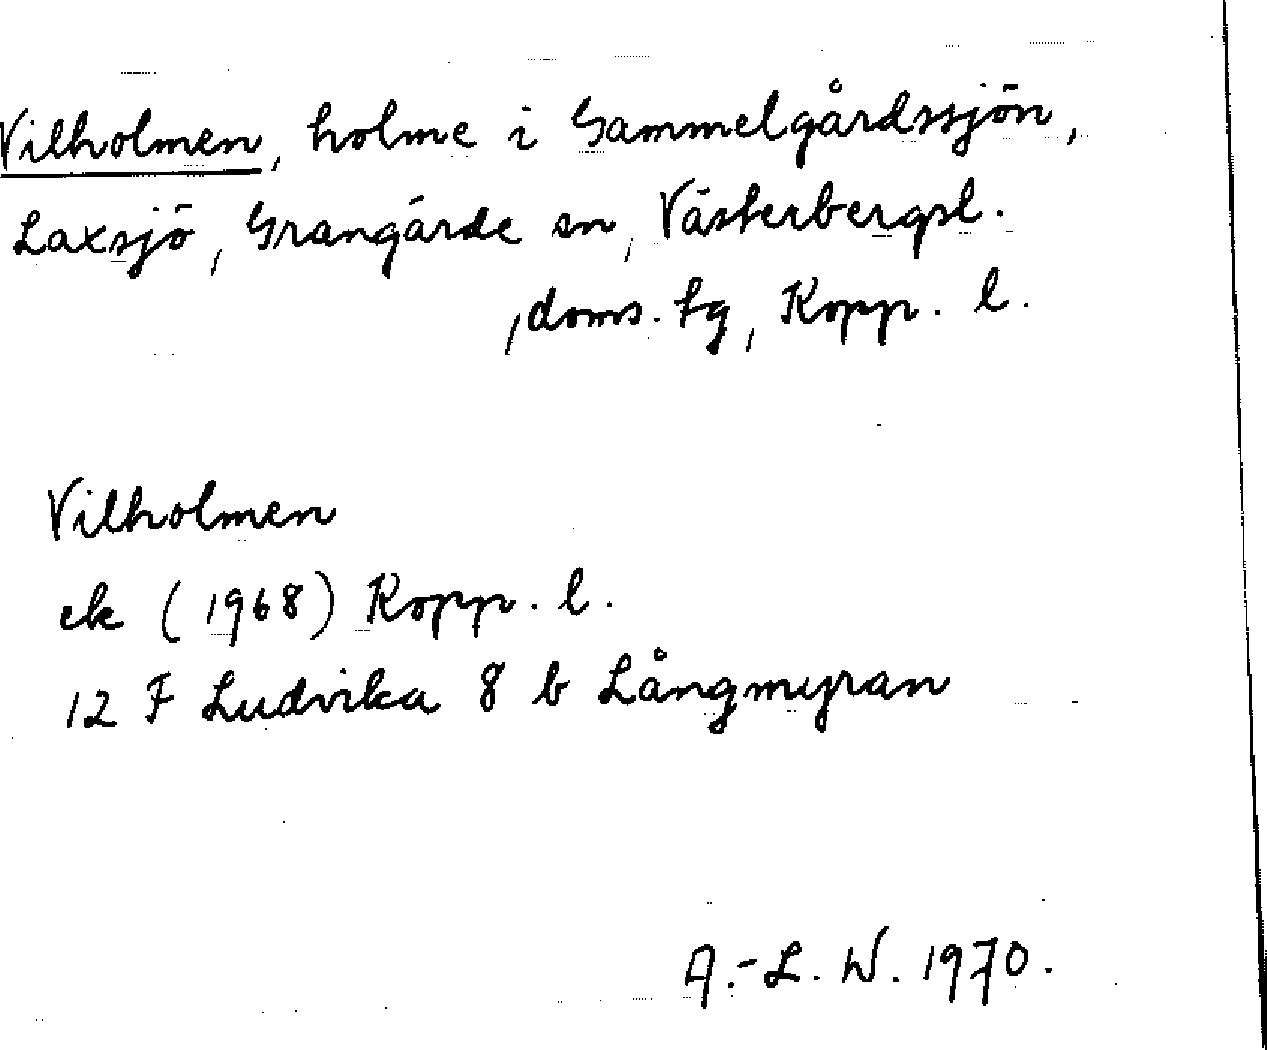 Vilholmen, holme i Gammelgårdssjön,
Laxsjö, Grangärde sn, Västerbergsl.
, doms. tg, Kopp. l.
Vilholmen
ek (1968) Kopp. l.
12 F Ludvika 8 b Långmyran
A.-L. W. 1970.